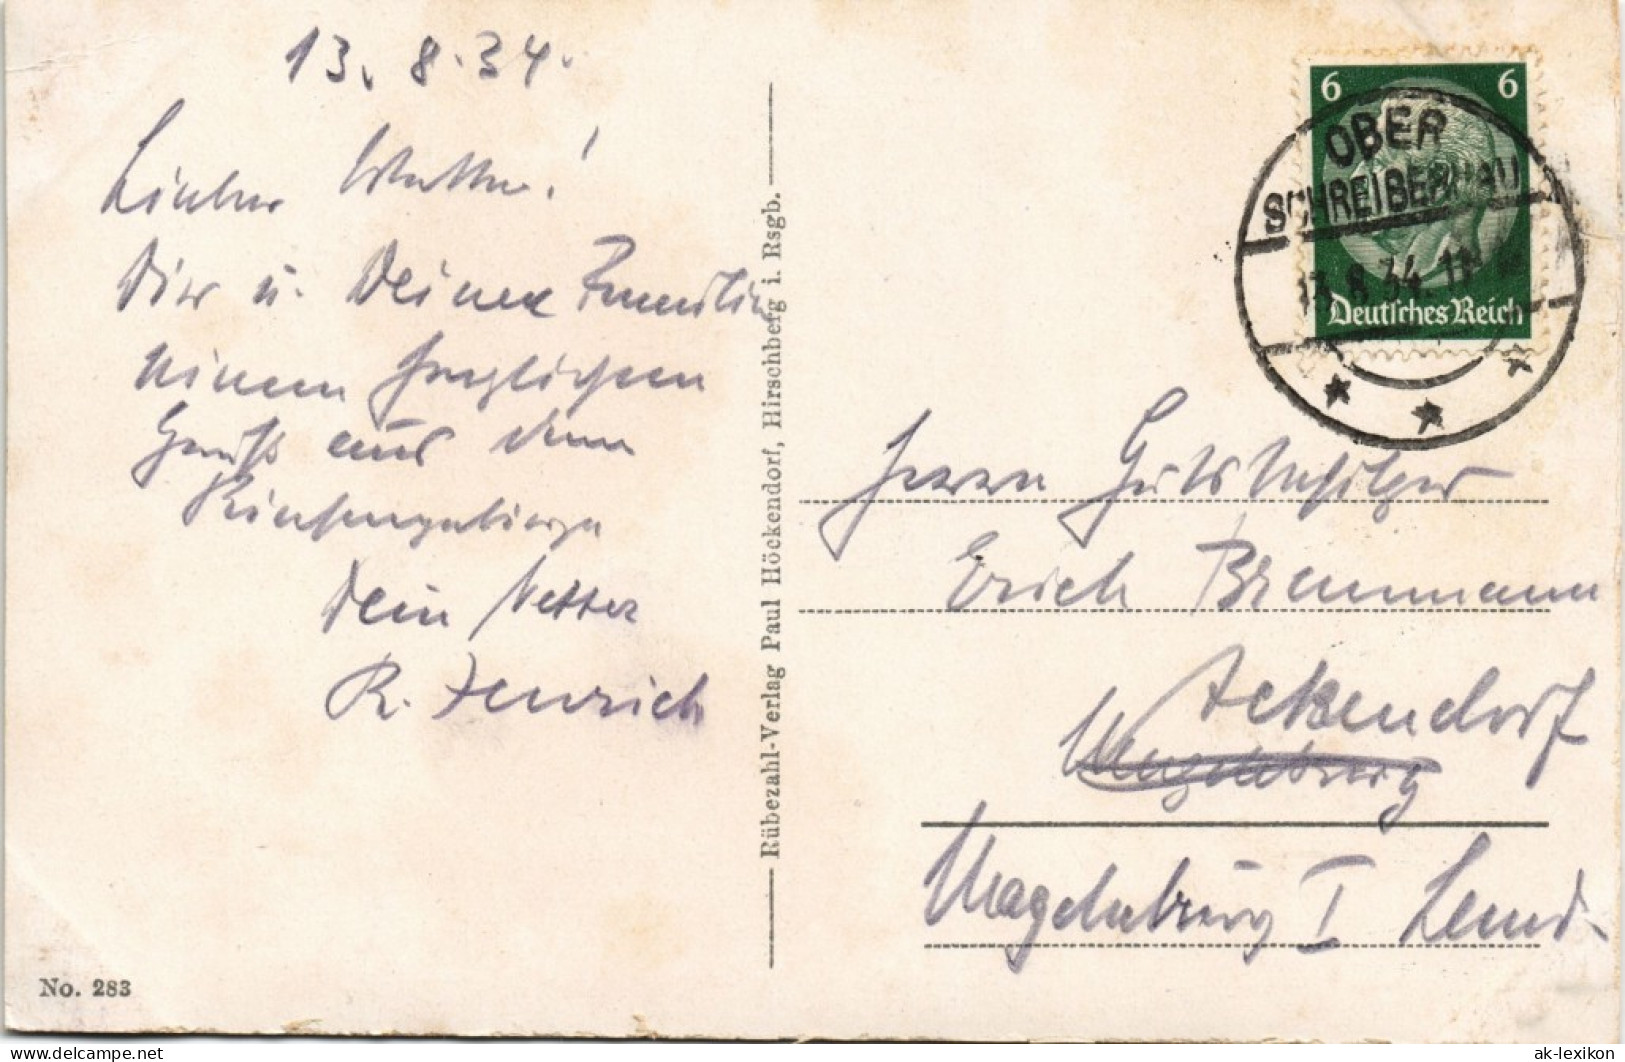 13. 8. 34.
Lieber Vetter!
Dir u. Deiner Familie
einen herzlichen
Gruß aus dem
Riesengebirge
Dein Vetter
R. Henrich
Rübezahl-Verlag Paul Höckendorf, Hirschberg i. Rsgb.
No. 283
6 6
Deutsches Reich
OBER
SCHREIBERHAU
13.8.34
Herrn Gutsbesitzer
Erich
Ackendorf
Magdeburg
Magdeburg I Land.
delcampe.net
ak-lexikon